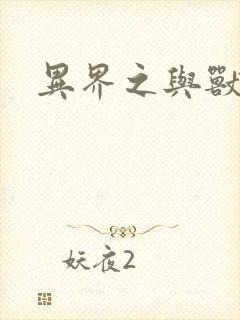 異界之與獸
妖夜2